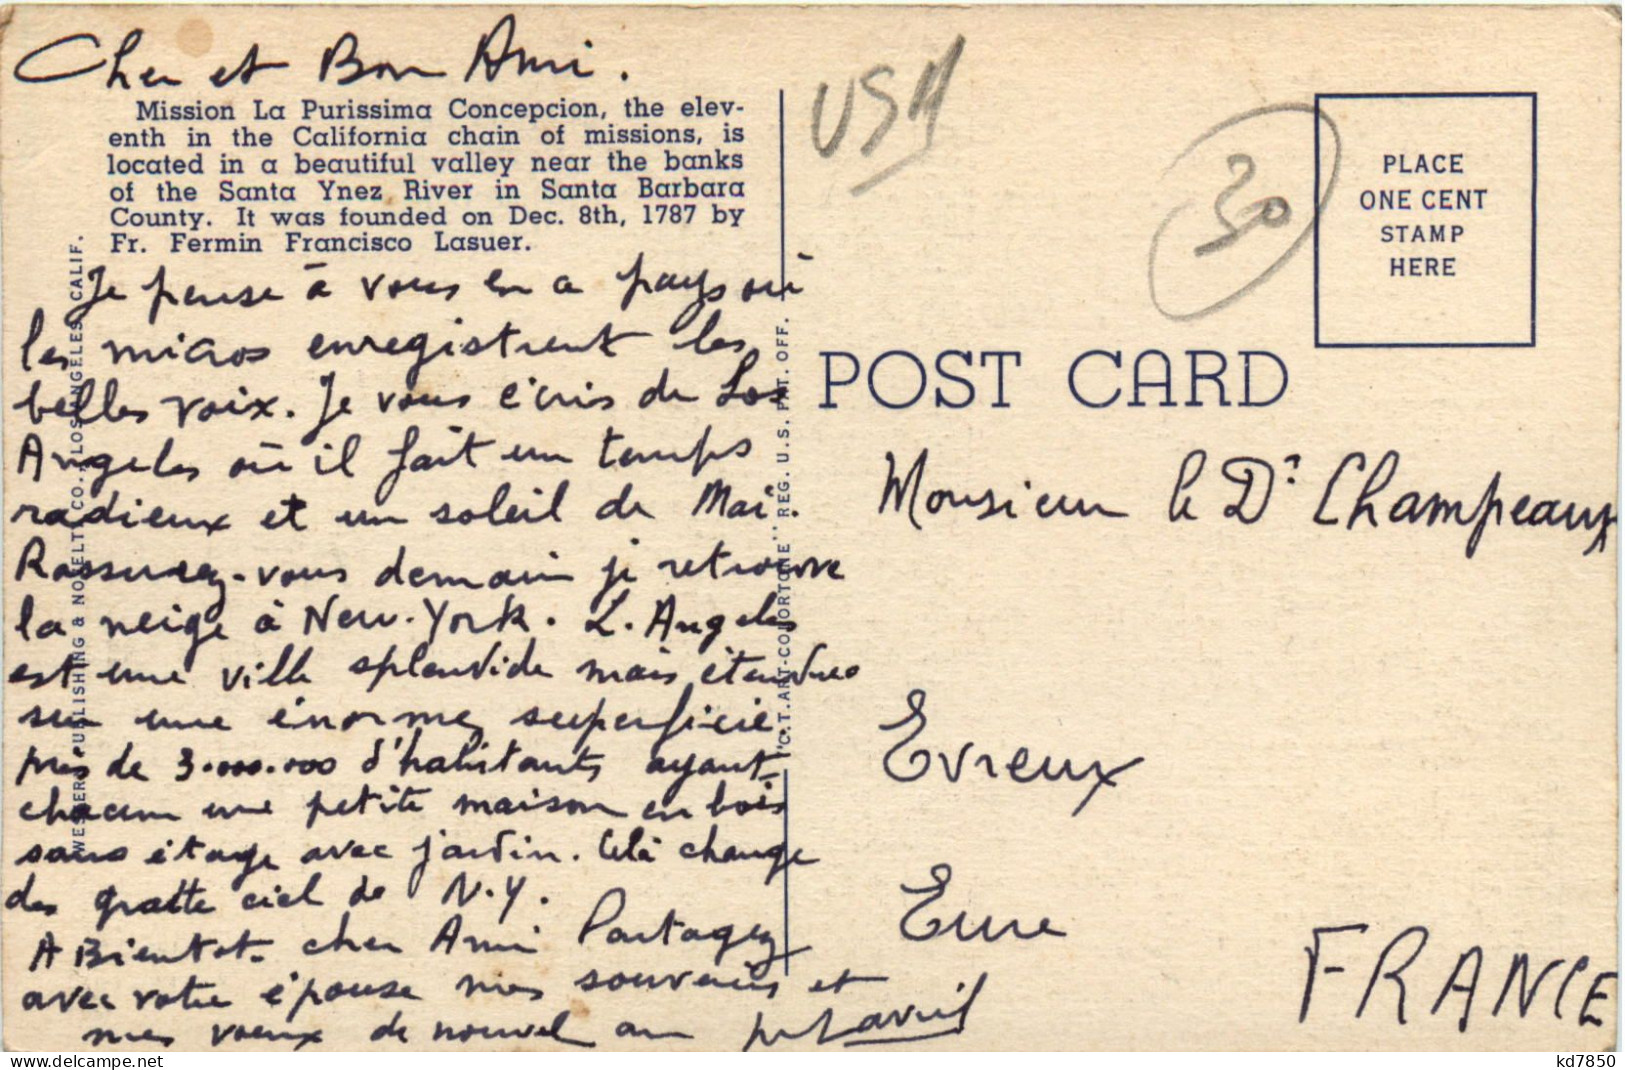 Cher et Bon Ami.
Mission La Purissima Concepcion, the elev-
enth in the California chain of missions, is
located in a beautiful valley near the banks
of the Santa Ynez River in Santa Barbara
County. It was founded on Dec. 8th, 1787 by
Fr. Fermin Francisco Lasuer.
Je pense à vous en a pays où
les micros enregistrent les
belles voix. Je vous écris de Los
Angeles où il fait un temps
radieux et un soleil de Mai.
Rassurez-vous demain je retrouve
la neige à New-York. L. Angeles
est une ville splendide mais étendue
sur une énorme superficie
près de 3.000.000 d'habitants ayant
chacun une petite maison en bois
sans étage avec jardin. Celà change
des gratte ciel de N.Y.
A Bientot cher Ami Partagez
avec votre épouse mes souvenirs et
mes voeux de nouvel an
WESTERN PUBLISHING & NOVELTY CO., LOS ANGELES, CALIF.
"C.T. ART-COLORTONE" REG. U.S. PAT. OFF.
USA
30
PLACE
ONE CENT
STAMP
HERE
POST CARD
Monsieur le Dr Champeaux
Evreux
Eure
FRANCE
www.delcampe.net
kd7850